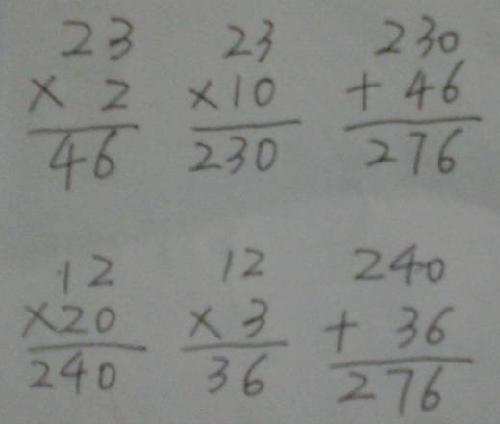 23 23 230
× 2 ×10 + 46
46 230 276
12 12 240
×20 × 3 + 36
240 36 276